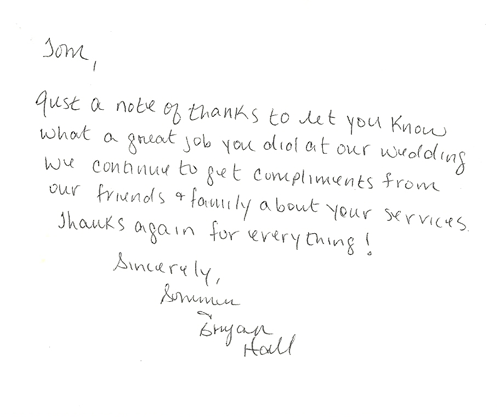 Tom,
Just a note of thanks to let you know
what a great job you did at our wedding
we continue to get compliments from
our friends & family about your services.
Thanks again for everything!
Sincerely,
Sommer
&
Bryan
Hall